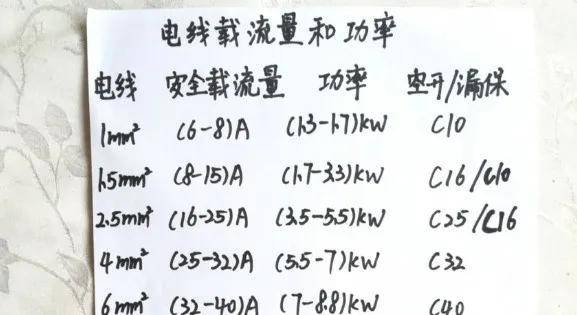 电线载流量和功率
电线 安全载流量 功率 空开/漏保
1mm² (6-8)A (1.3-1.7)kW C10
1.5mm² (8-15)A (1.7-3.3)kW C16/C10
2.5mm² (16-25)A (3.5-5.5)kW C25/C16
4mm² (25-32)A (5.5-7)kW C32
6mm² (32-40)A (7-8.8)kW C40